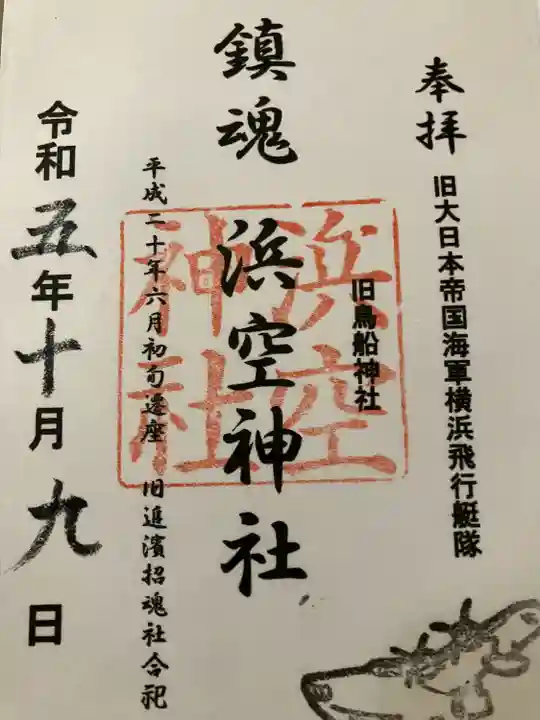 奉拝
旧大日本帝国海軍横浜飛行艇隊
旧鳥船神社
鎮魂 浜空神社
浜空
神社
平成二十年六月初旬遷座 旧追濱招魂社合祀
令和五年十月九日